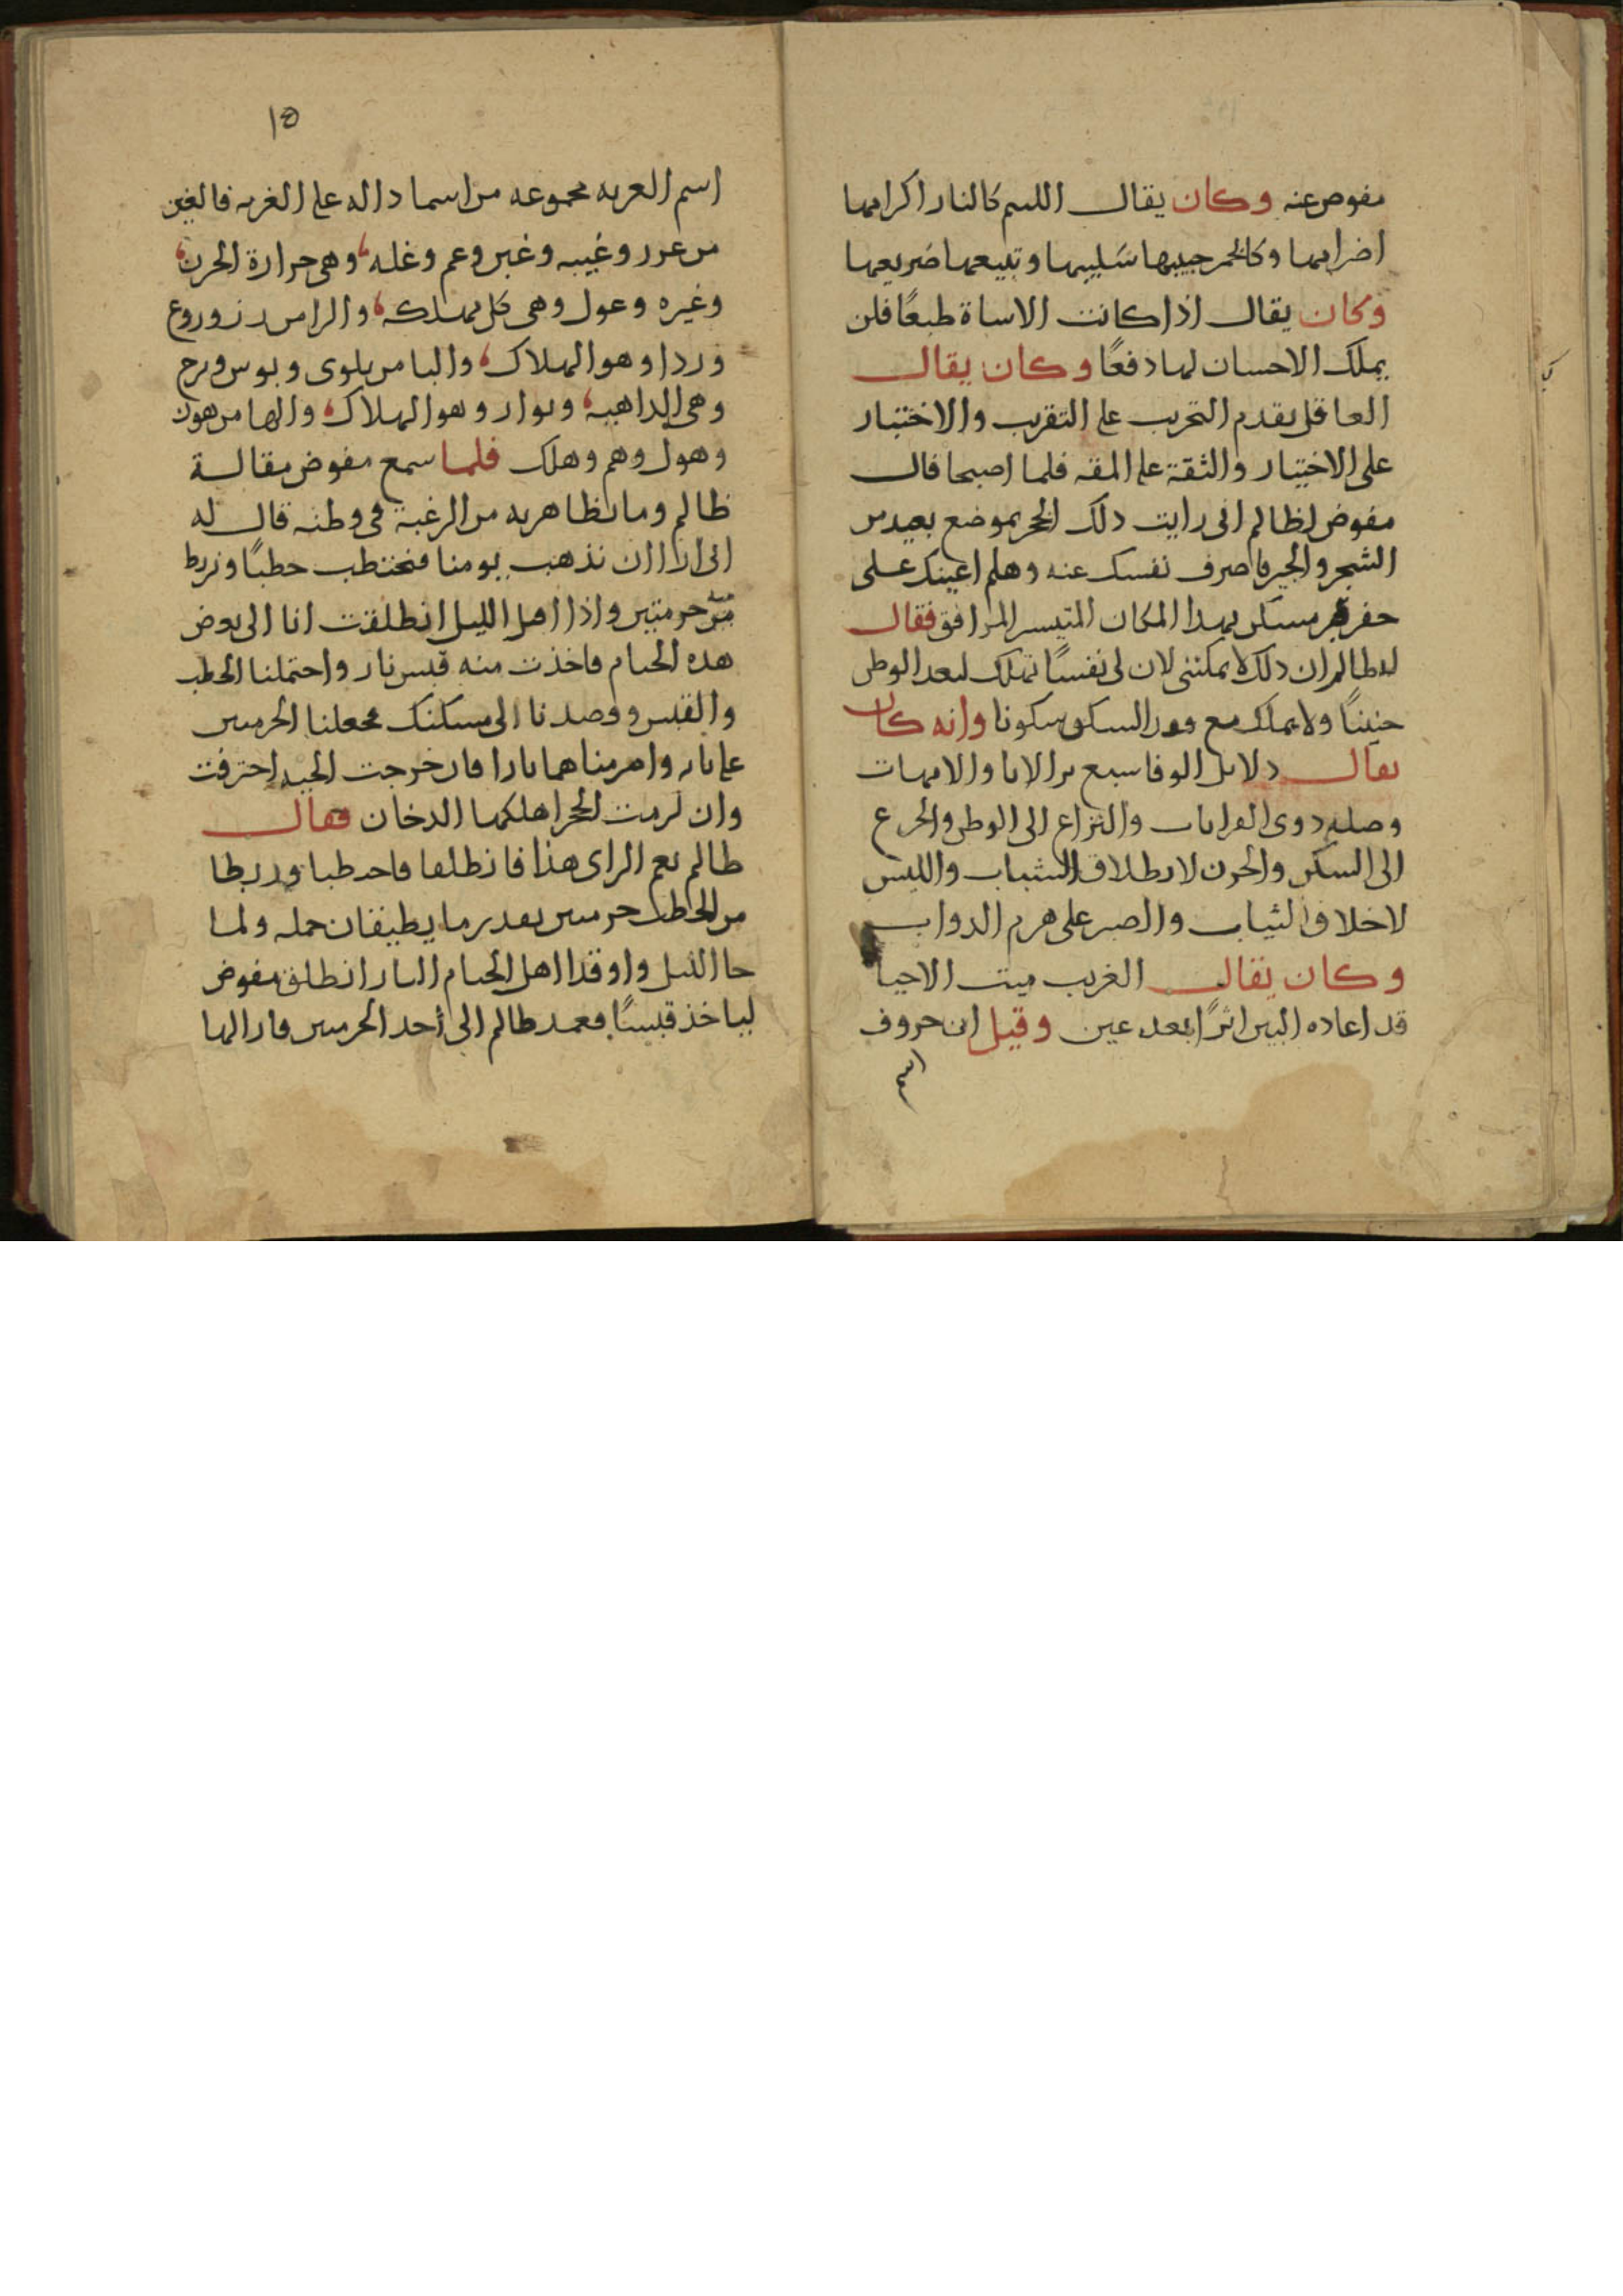 مفوض عنه وكان يقال اللييم كالنار اكرامها
اضرامها وكالخمر حبيبها سليبها وتبيعها صريعها
وكان يقال اذا كانت الاساة طبعًا فلن
يملك الاحسان لها دفعًا وكان يقال
العاقل يقدم التجريب على التقريب والاختبار
على الاختيار والثقة على المقه فلما اصبحا قال
مفوض لظالم انى رايت دلك الجحر بموضع بعيد من
الشجر والخير فاصرف نفسك عنه وهلم اعينك على
حفر مسكن بهذا المكان المتيسر المرافق فقال
له ظالم ان دلك لا يمكننى لان لى نفسًا تهلك لبعد الوطن
حنينًا ولا تملك مع فقد السكن سكونا وانه كان
يقال دلايل الوفا سبع بر الابا والامهات
وصلة دوى القرابات والنزاع الى الوطن والجزع
الى السكن والحزن لانطلاق الشباب واللبس
لاخلاق الثياب والصبر على هرم الدواب
وكان يقال الغريب ميت الاحيا
قد اعاده البين اثرًا بعد عين وقيل ان حروف
اسم
١٥
اسم الغربه مجموعه من اسما داله على الغربه فالغين
من غرر وغيبه وغبن وغم وغله وهى حرارة الحزن
وغيره وغول وهى كل مهلكه والرا من رز وروع
وردا وهو الهلاك والبا من بلوى وبوس وبرح
وهى الداهيه وبوار وهو الهلاك والها من هون
وهول وهم وهلك فلما سمع مفوض مقالة
ظالم وما تظاهر به من الرغبة فى وطنه قال له
انى ارا ان نذهب يومنا فنحتطب حطبًا ونربط
منه حزمتين واذا اقبل الليل انطلقت انا الى بعض
هذه الخيام فاخذت منه قبس نار واحتملنا الحطب
والقبس وقصدنا الى مسكنك فجعلنا الحزمتين
على بابه واضرمناهما نارا فان خرجت الحيه احترقت
وان لزمت الجحر اهلكها الدخان فقال
ظالم نعم الراى هذا فانطلقا فاحتطبا وربطا
من الحطب حزمتين بقدر ما يطيقان حمله ولما
جا الليل واوقدا اهل الخيام النار انطلق مفوض
لياخذ قبسًا فعمد ظالم الى أحد الحزمتين فازالها